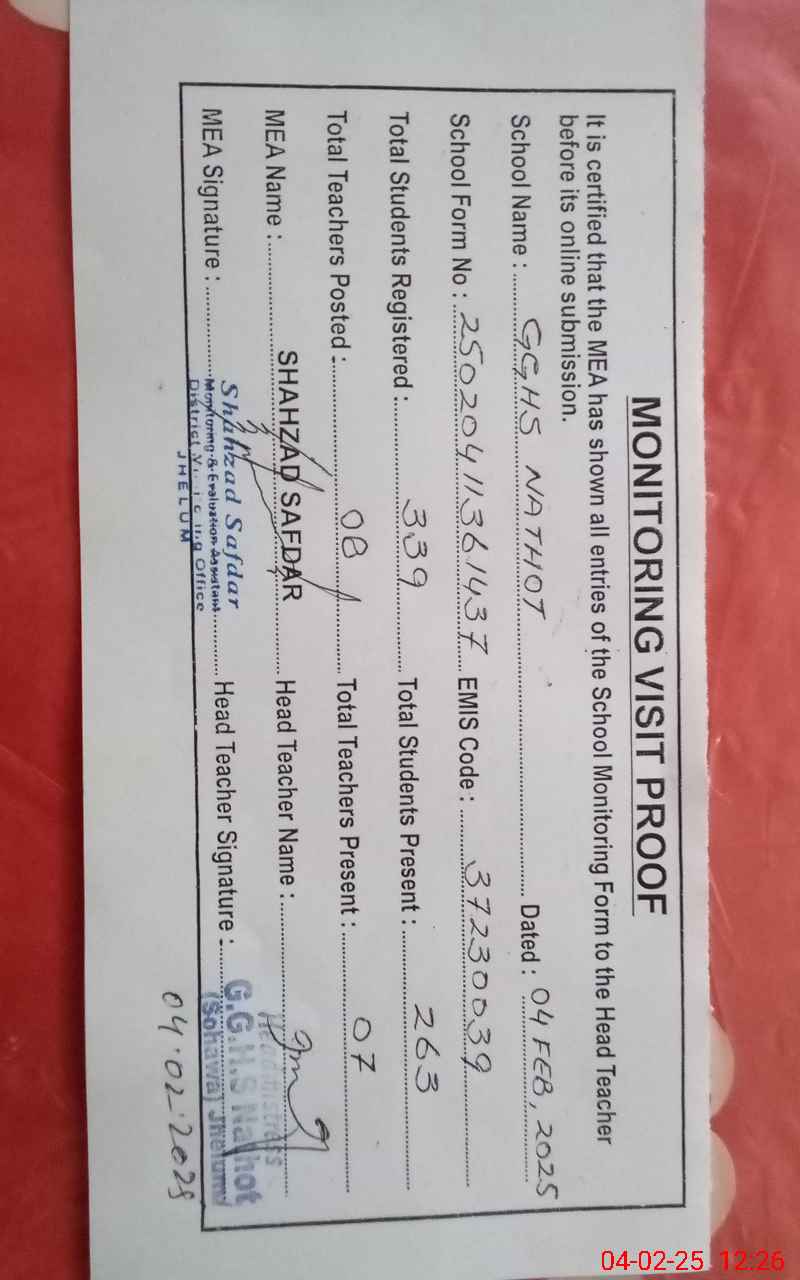 MONITORING VISIT PROOF
It is certified that the MEA has shown all entries of the School Monitoring Form to the Head Teacher
before its online submission.
School Name : GGHS NATHOT Dated : 04 FEB, 2025
School Form No : 25020411361437 EMIS Code : 37230039
Total Students Registered : 339 Total Students Present : 263
Total Teachers Posted : 08 Total Teachers Present : 07
MEA Name : SHAHZAD SAFDAR Head Teacher Name :
MEA Signature : Head Teacher Signature :
Shahzad Safdar
Monitoring & Evaluation Assistant
District Office
JHELUM
Headmistress
G.G.H.S Nathot
(Sohawa) Jhelum
04.02.2025
04-02-25 12:26